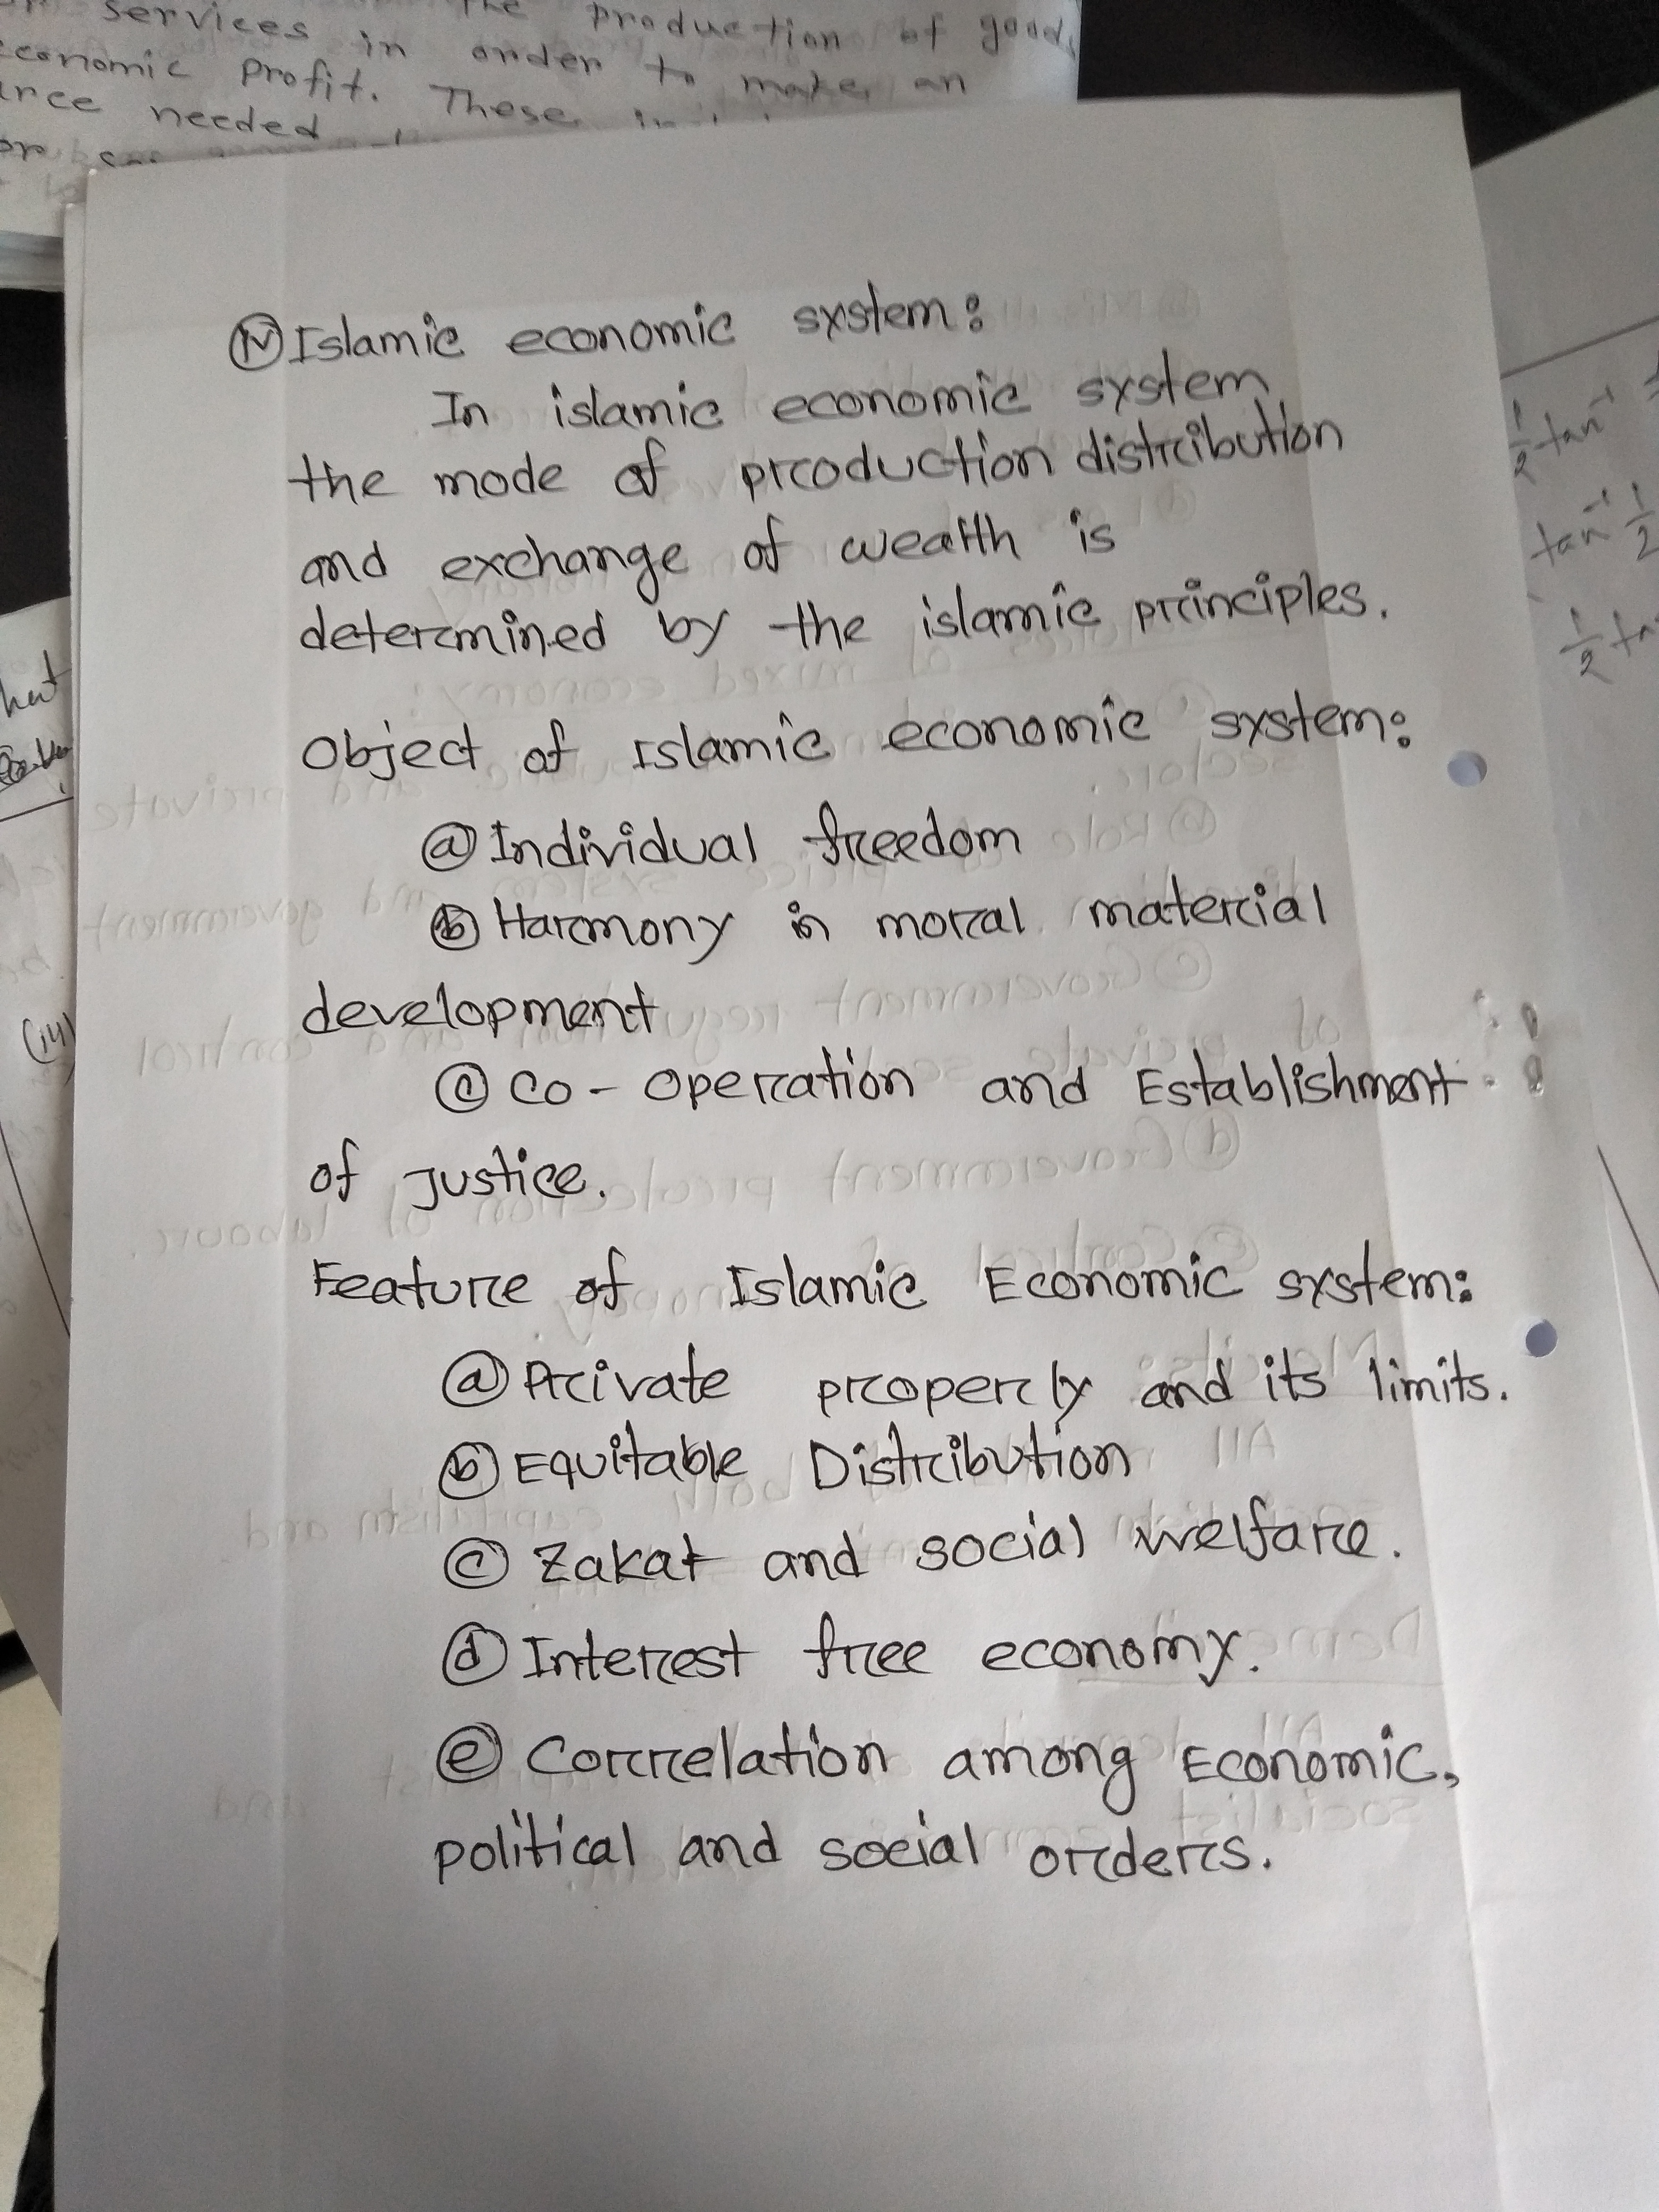 services in the production of good
economic profit. These
in order to make an
needed
(IV) Islamic economic system:
In islamic economic system,
the mode of production distribution
and exchange of wealth is
determined by the islamic principles.
Object of Islamic economic system:
(a) Individual freedom
(b) Harmony in moral material
development
(c) Co-operation and Establishment
of Justice.
Feature of Islamic Economic system:
(a) Private property and its limits.
(b) Equitable Distribution
(c) Zakat and social welfare.
(d) Interest free economy.
(e) Correlation among Economic,
political and social orders.
1/2 tan⁻¹
tan⁻¹ 1/2